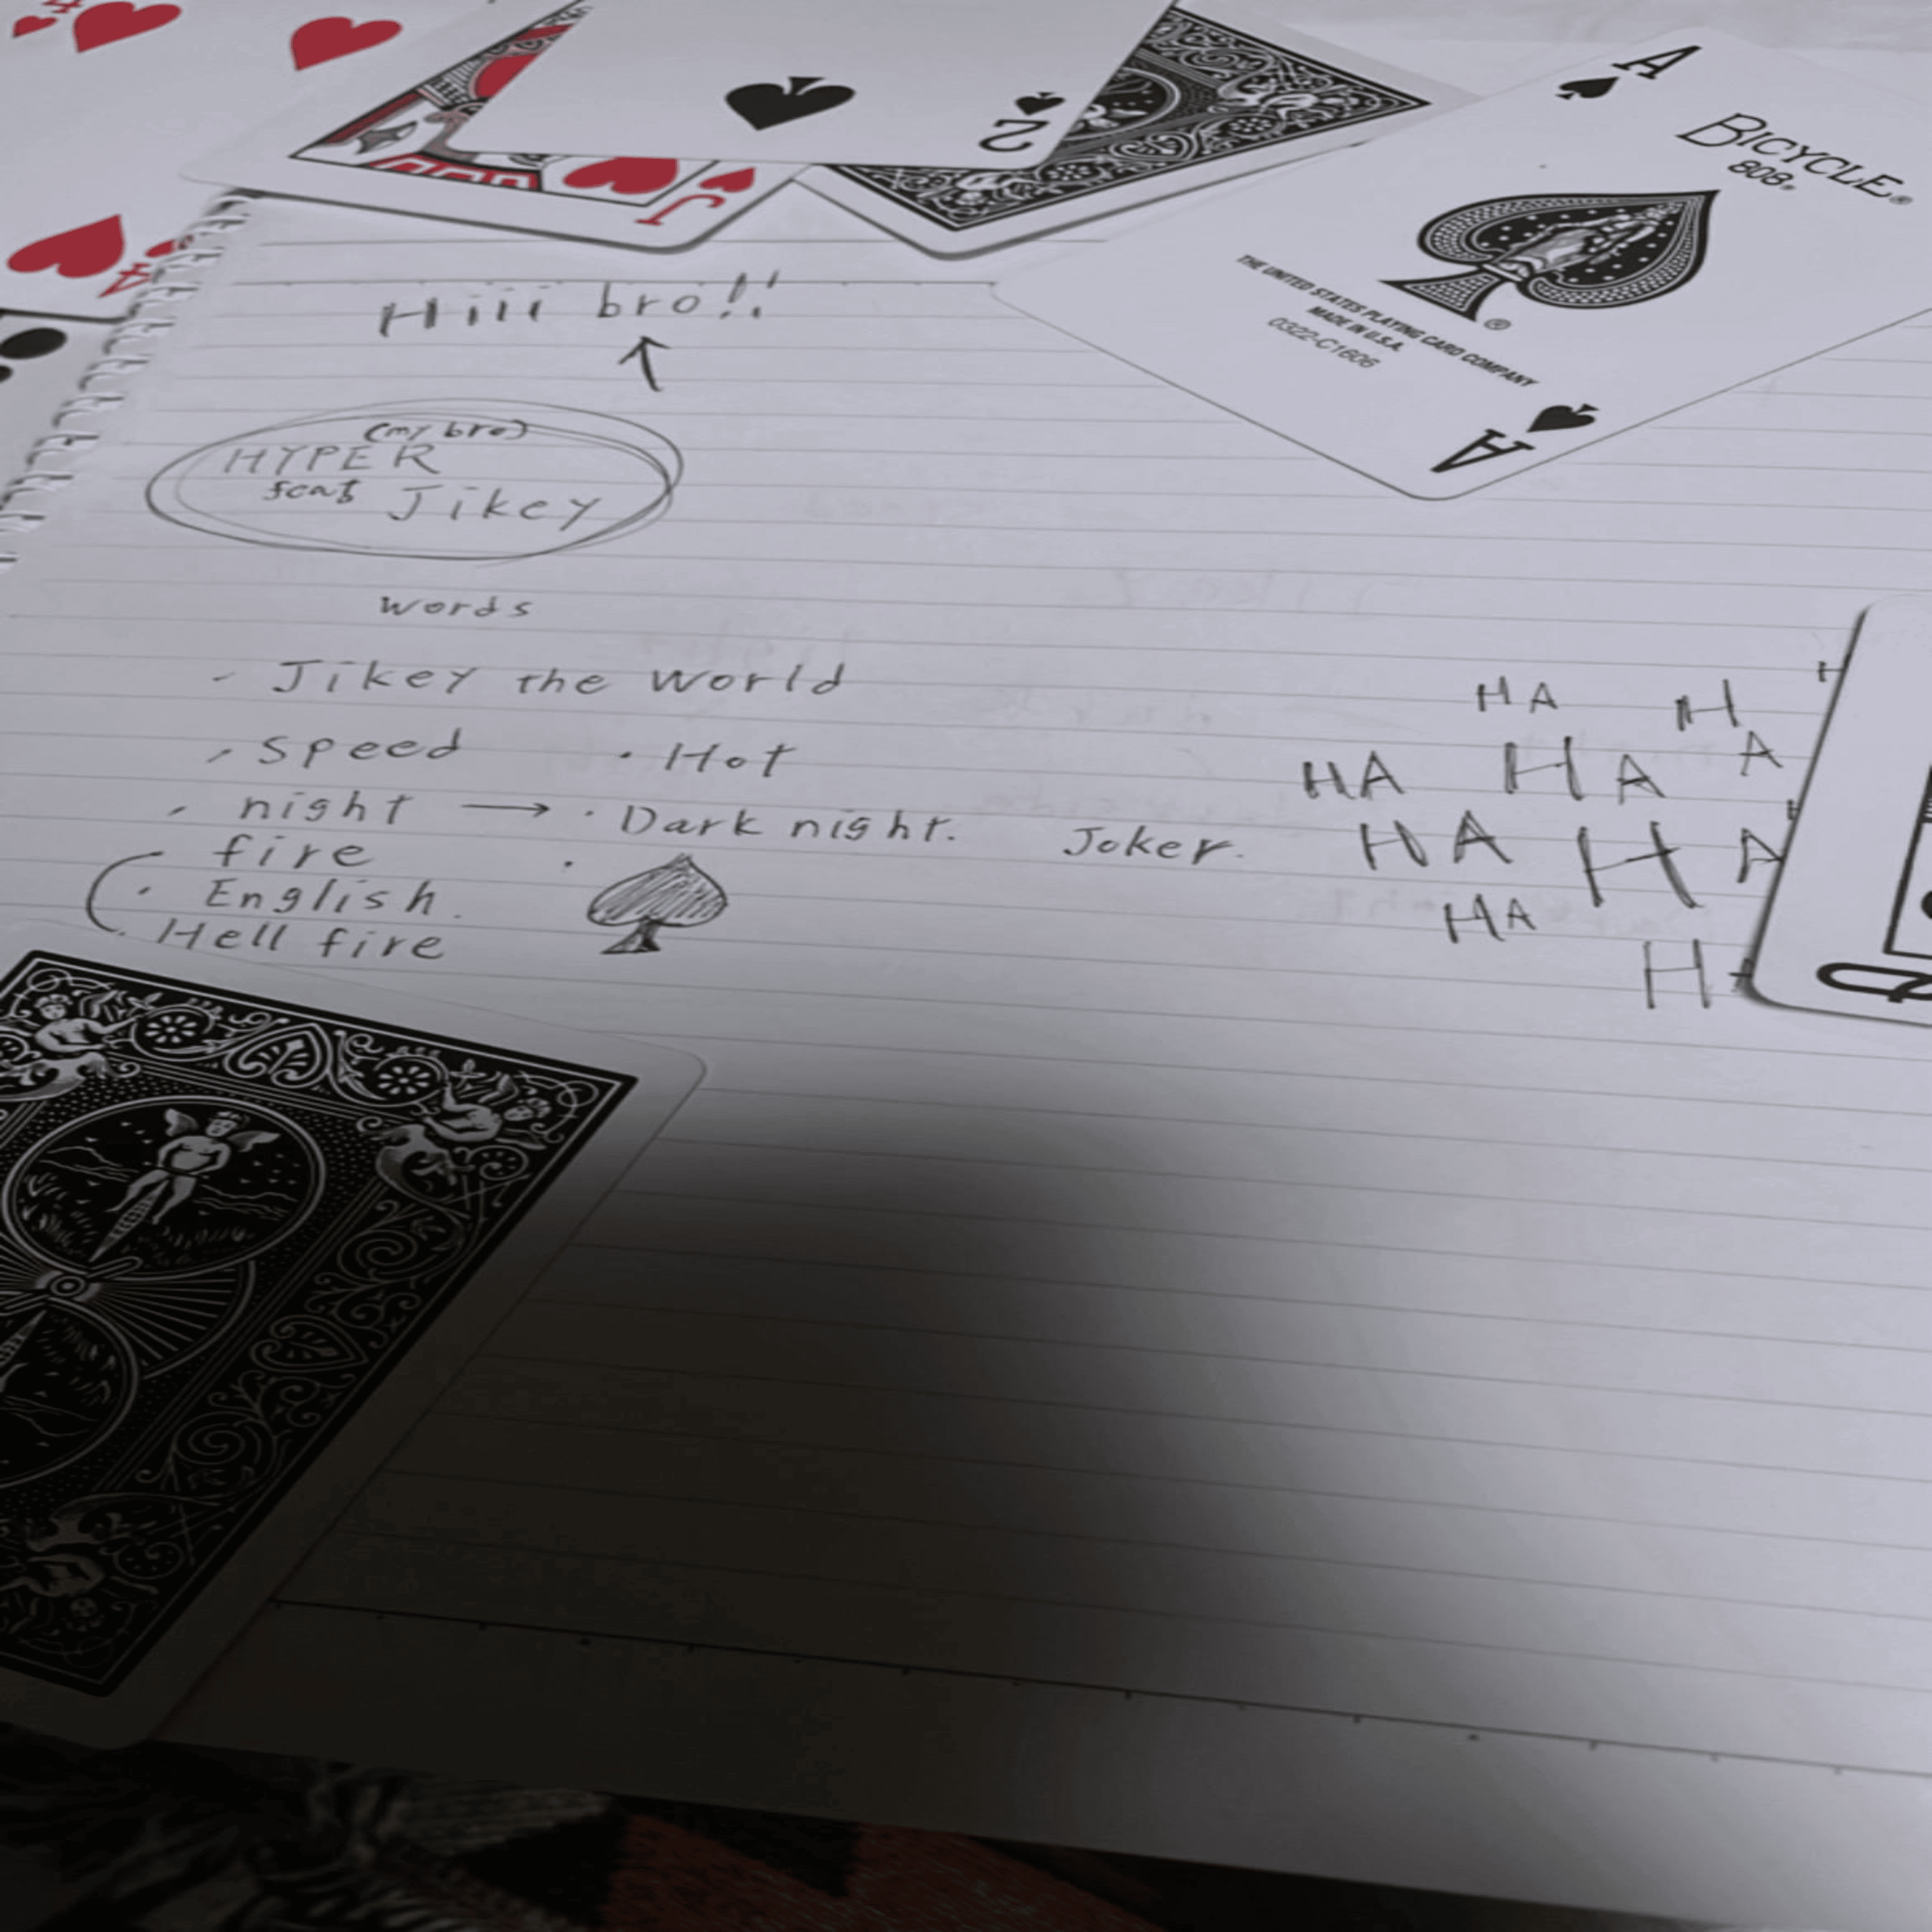 4
2
J
4
A
BICYCLE®
808®
®
THE UNITED STATES PLAYING CARD COMPANY
MADE IN U.S.A.
0322-C1606
A
Hiii bro!!
(my bro)
HYPER
feat Jikey
words
- Jikey the world
- speed · Hot
- night → · Dark night. Joker.
fire
· English.
· Hell fire
HA HA
HA HA
HA HA
HA
H
H
H
Q